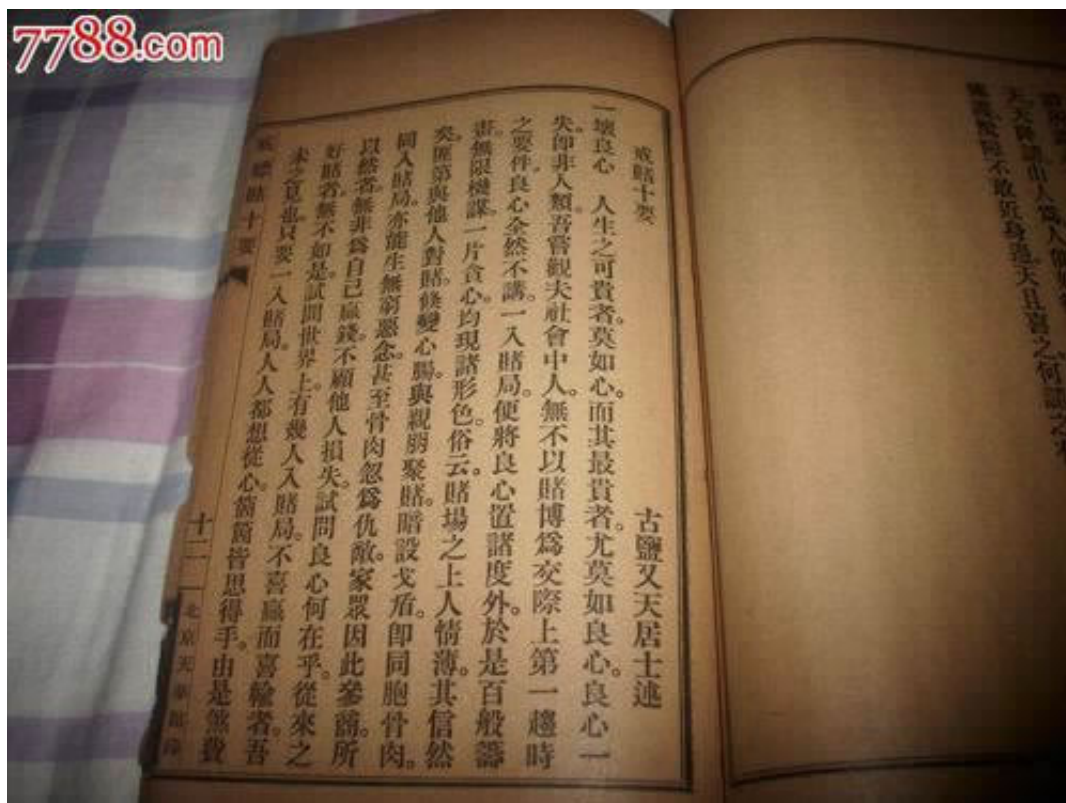 7788.com
天天降諸由人爲人
不敢近身過天且喜之何
戒賭十要
古鹽又天居士述
一壞良心　人生之可貴者。莫如心。而其最貴者。尤莫如良心。良心一
失。卽非人類。吾嘗觀夫社會中人。無不以賭博爲交際上第一趨時
之要件。良心全然不講。一入賭局。便將良心置諸度外。於是百般籌
畫。無限機謀。一片貪心。均現諸形色。俗云。賭場之上人情薄。其信然
矣。匪第與他人對賭。倏變心腸。與親朋聚賭。暗設戈盾。卽同胞骨肉。
同入賭局。亦能生無窮惡念。甚至骨肉忽爲仇敵。家眾因此參商。所
以然者。無非爲自己贏錢。不顧他人損失。試問良心何在乎。從來之
好賭者。無不如是。試問世界上。有幾人入賭局。不喜贏而喜輸者。吾
未之見也。只要一入賭局。人人都想從心。箇箇皆思得手。由是煞費
賭十要
十二
北京天華館